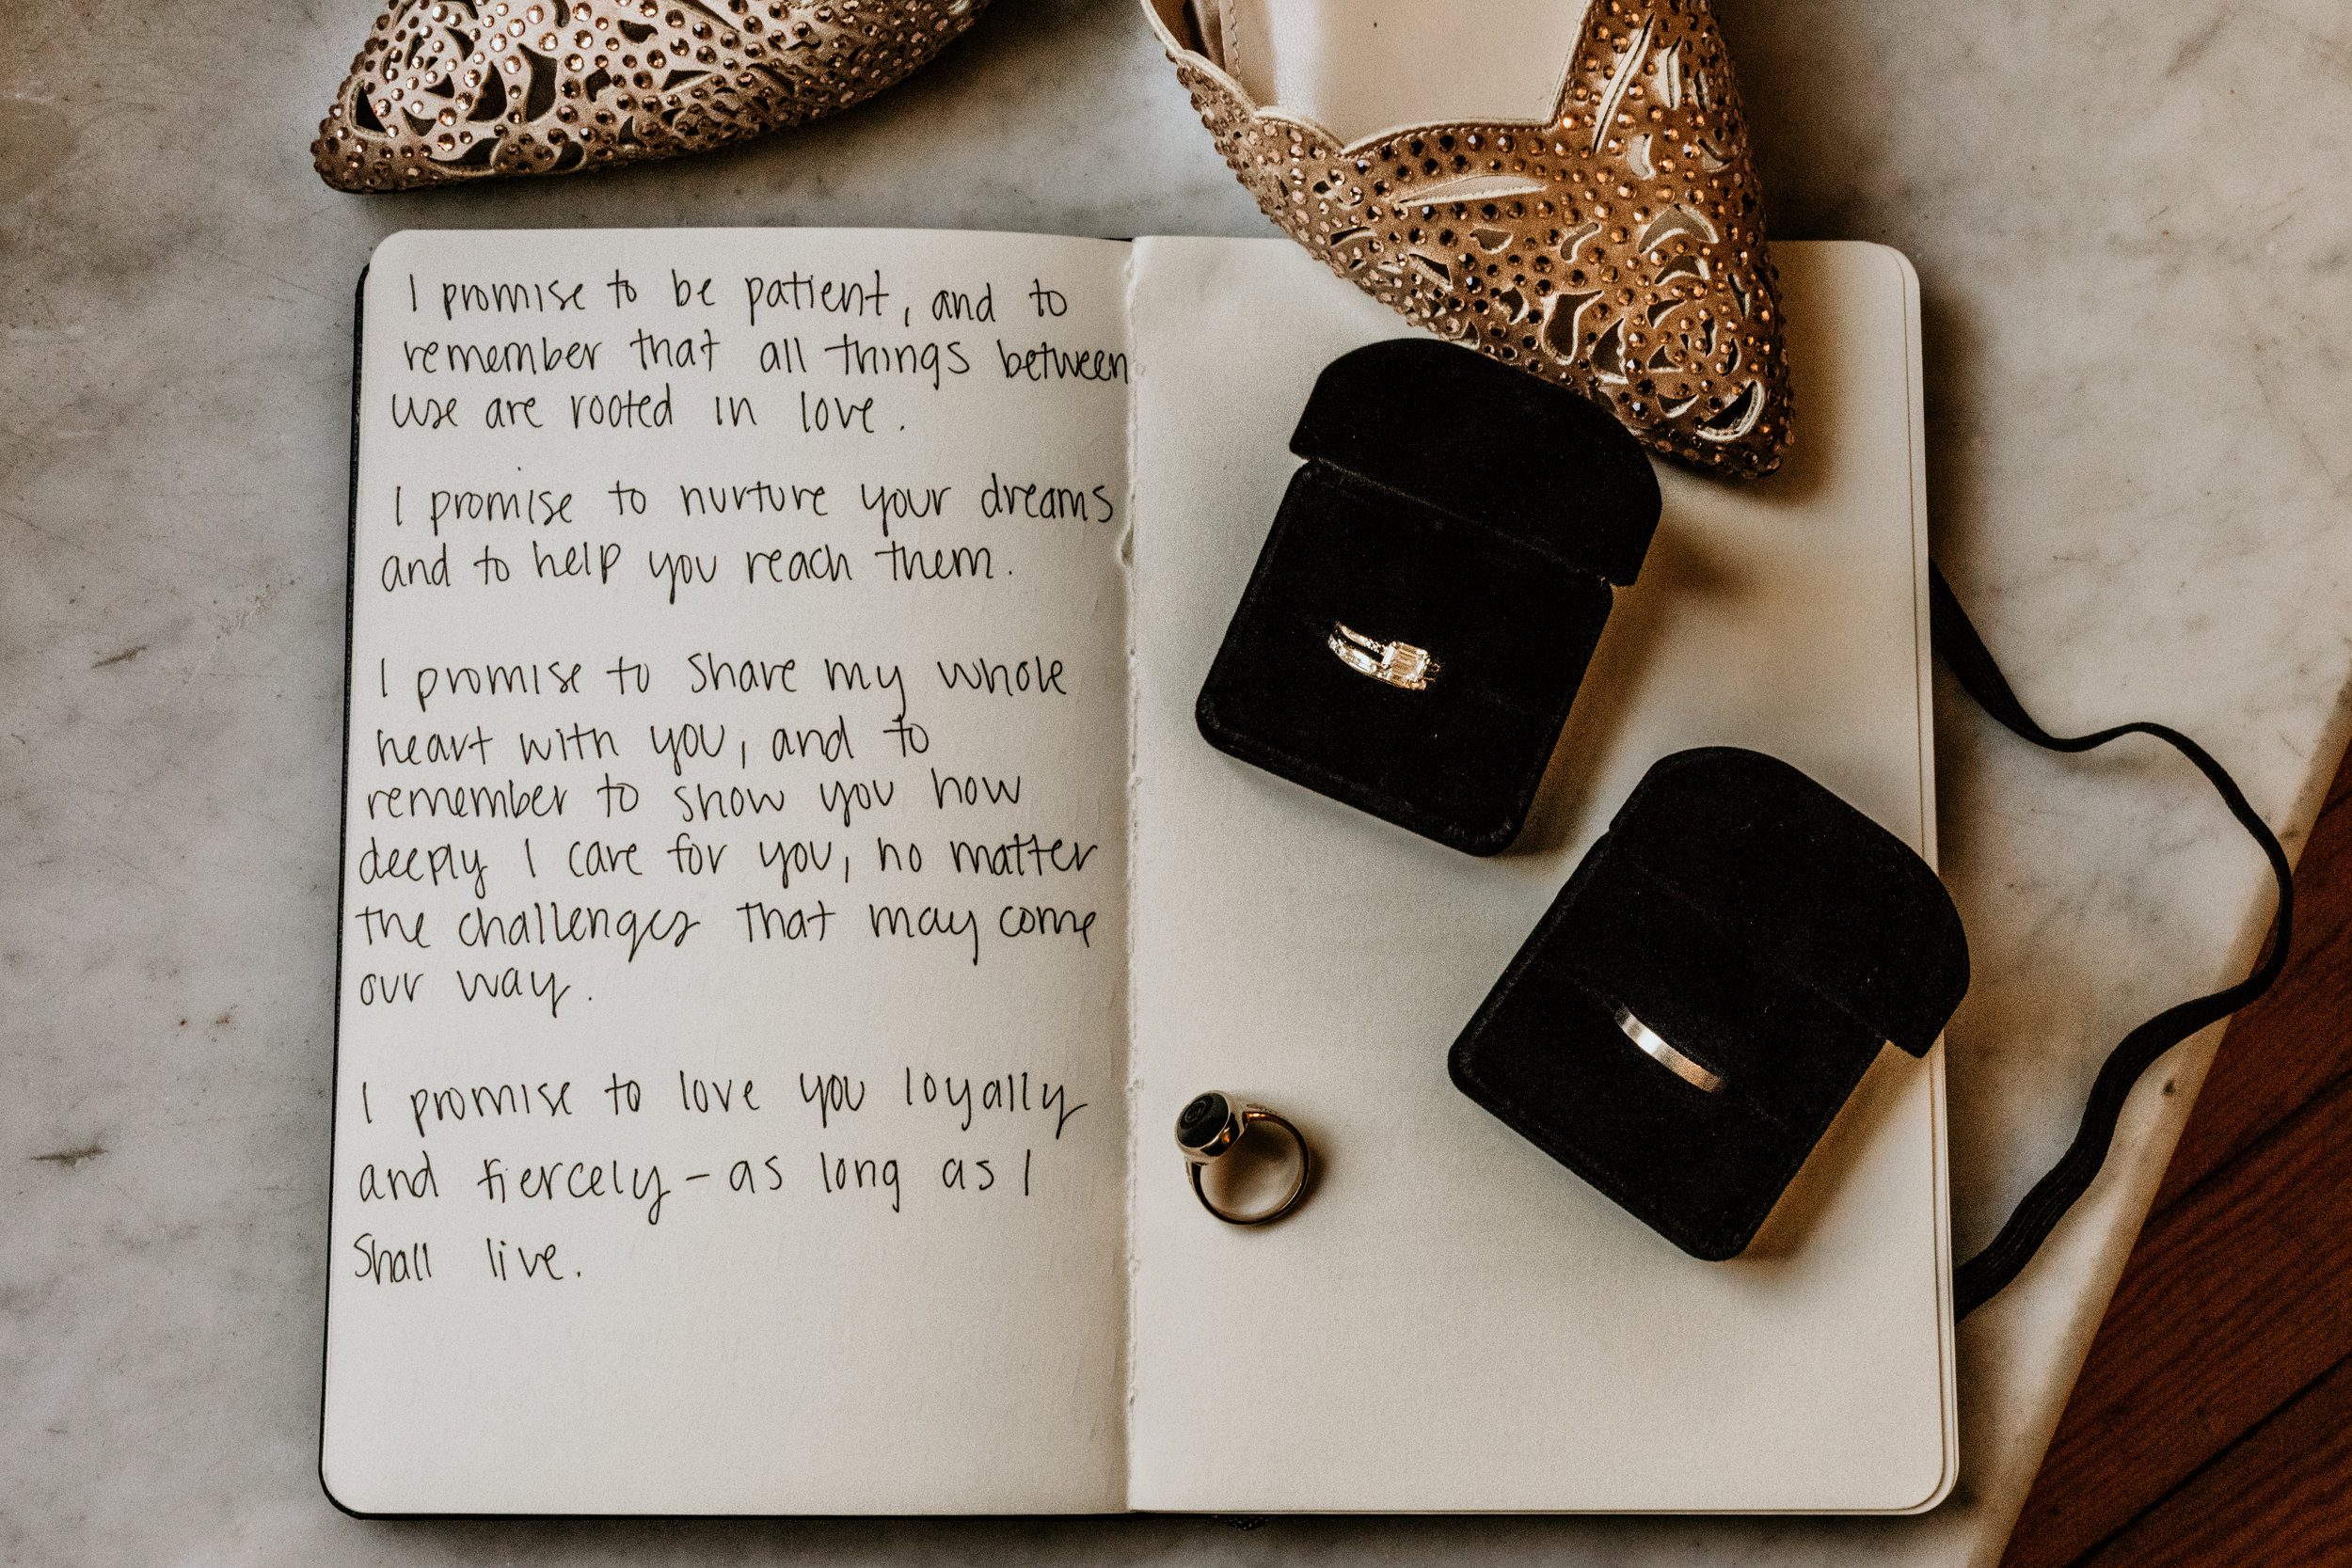 I promise to be patient, and to
remember that all things between
use are rooted in love.
I promise to nurture your dreams
and to help you reach them.
I promise to share my whole
heart with you, and to
remember to show you how
deeply I care for you, no matter
the challenges that may come
our way.
I promise to love you loyally
and fiercely - as long as I
Shall live.